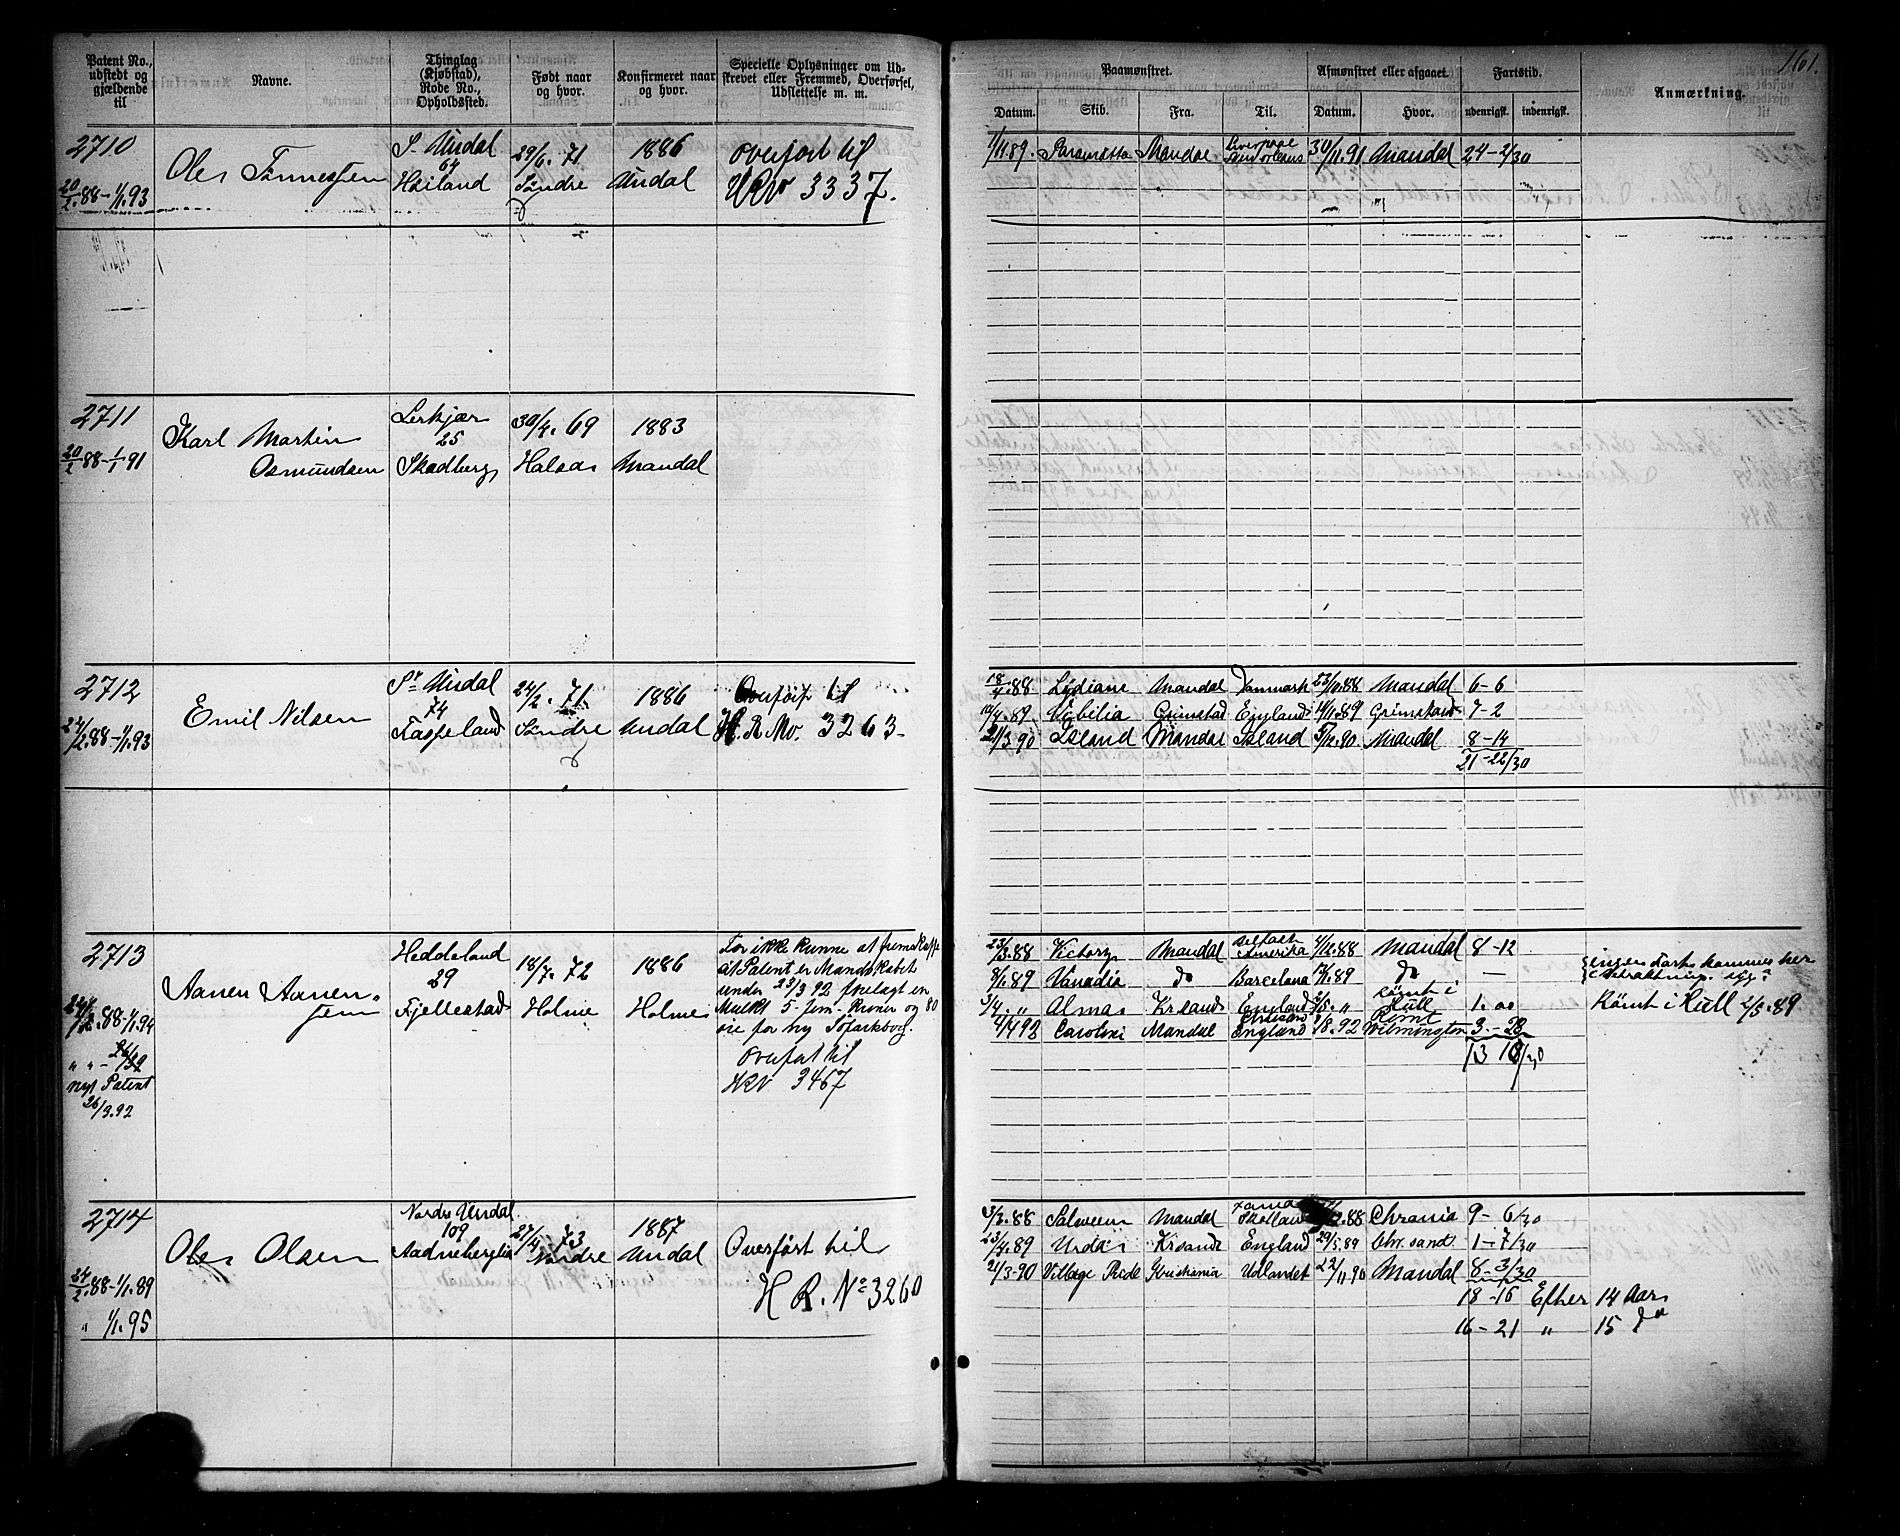 161.
Patent No., udstedt og gjældende til
Navne.
Thinglag (Kjøbstad), Rode No., Opholdssted.
Født naar og hvor.
Konfirmeret naar og hvor.
Specielle Oplysninger om Udskrevet eller Fremmed, Overførsel, Udslettelse m. m.
Paamønstret.
Afmønstret eller afgaaet.
Fartstid.
Anmærkning.
Datum. Skib. Fra. Til. Datum. Hvor. udenrigsk. indenrigsk.
2710
20/2.88-1/1.93
Ole Tønnessen
S. Undal
64
Høiland
29/6.71
Søndre
1886
Undal
Overført til
HRNo 3337.
1/11.89. Paramatta Mandal Liverpool New Orleans 30/11.91 Mandal 24-2/30
2711
20/2 88-1/1 91
Karl Martin
Osmundsen
Lerkjær
25
Skadberg
30/4.69
Halsaa
1883
Mandal
2712
24/2.88-1/1.93
Emil Nilsen
Sr Undal
74
Faspeland
24/2.71
Søndre
1886
Undal
Overført til
H.R.No. 3263-
18/4.88 Lydiane Mandal Danmark 23/10.88 Mandal 6-6
10/4.89. Vibilia Grimstad England 14/11.89 Grimstad 7-2
21/3 90 Island Mandal Island 5/12.90 Mandal 8-14
21-22/30
2713
24/2.88-1/1.94
nyt Patent
26/3.92
Aanen Aanen-
sen
Heddeland
29
Fjellestad
18/7.72
Holme
1886
Holme
For ikke kunne at fremskaffe
sit Patent er Mandskabet
under 23/3 92 forelagt en
Mulkt 5-fem-Kroner og 80
øre for ny Søfartsbog.
Overført til
HRN 3467
23/3.88 Victory Mandal Belfast Amerika 4/12.88 Mandal 8-12
8/1.89 Vanadia do Barcelona 89 do — ingen Fart kommer her i betraktning.
3/4 " " Alma Krsand England 2/5. " rømt i Hull 1.00 Rømt i Hull 2/5.89
4/4 92 Caroline Mandal England /8.92 Rømt Wilmington 3.-28
13 10/30
2714
24/2.88-1/1.89
" 1/1.95
Ole Olsen
Nordre Undal
109
Aadneberglia
27/4 73
Nordre
1887
Undal
Overført til
H R. No 3260
3/3.88 Salveem Mandal Skotland .88 Chrania 9-6/30
23/4.89 Urda Krsand England 29/5.89 Chr.sand 1-7/30
21/3-90 Village Pride Kristiania Udlandet 22/11 90 Mandal 8-3/30
18-16 Efter 14 Aar
16-21 " 15 do